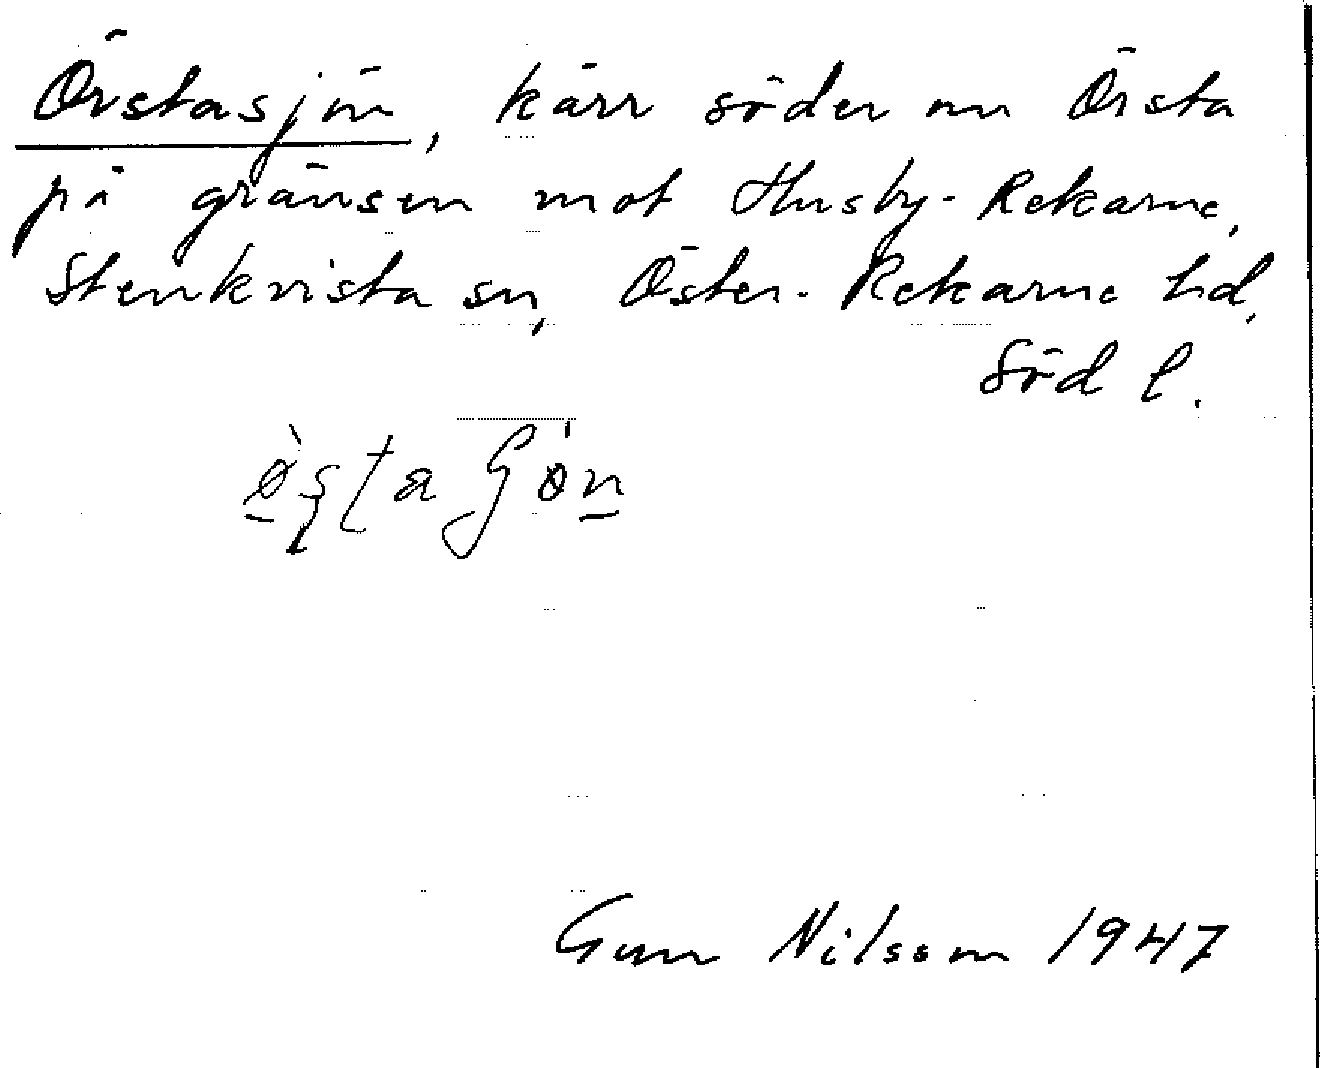 Örstasjön, kärr söder om Örsta
på gränsen mot Husby-Rekarne,
Stenkvista sn, Öster-Rekarne hd,
Söd l.
Gun Nilsson 1947